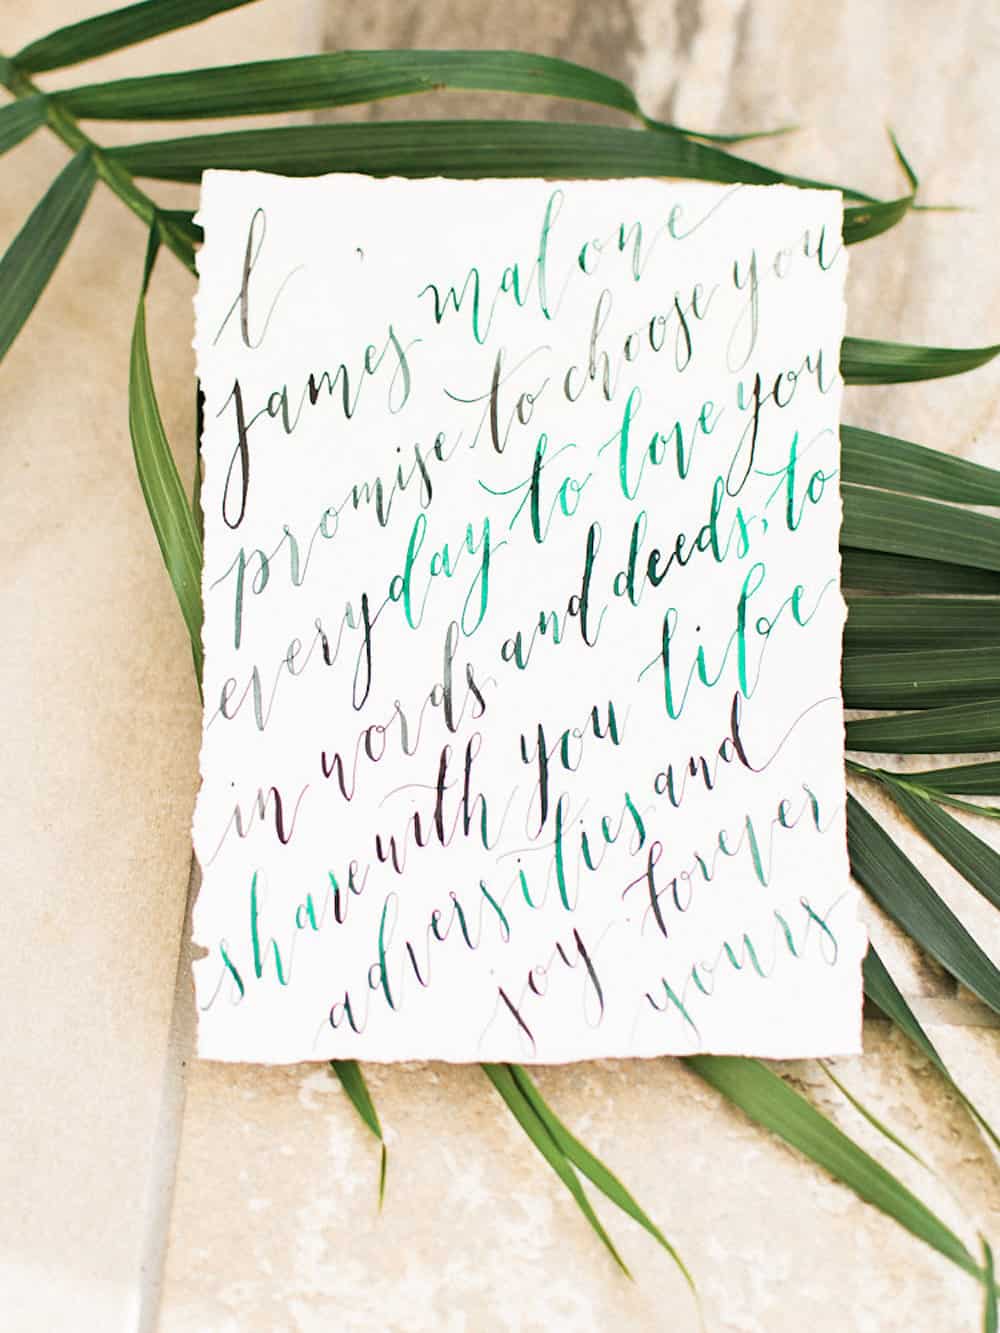 I,
james malone
promise to choose you
everyday, to love you
in words, and deeds, to
share with you life
adversities and
joy. Forever
yours